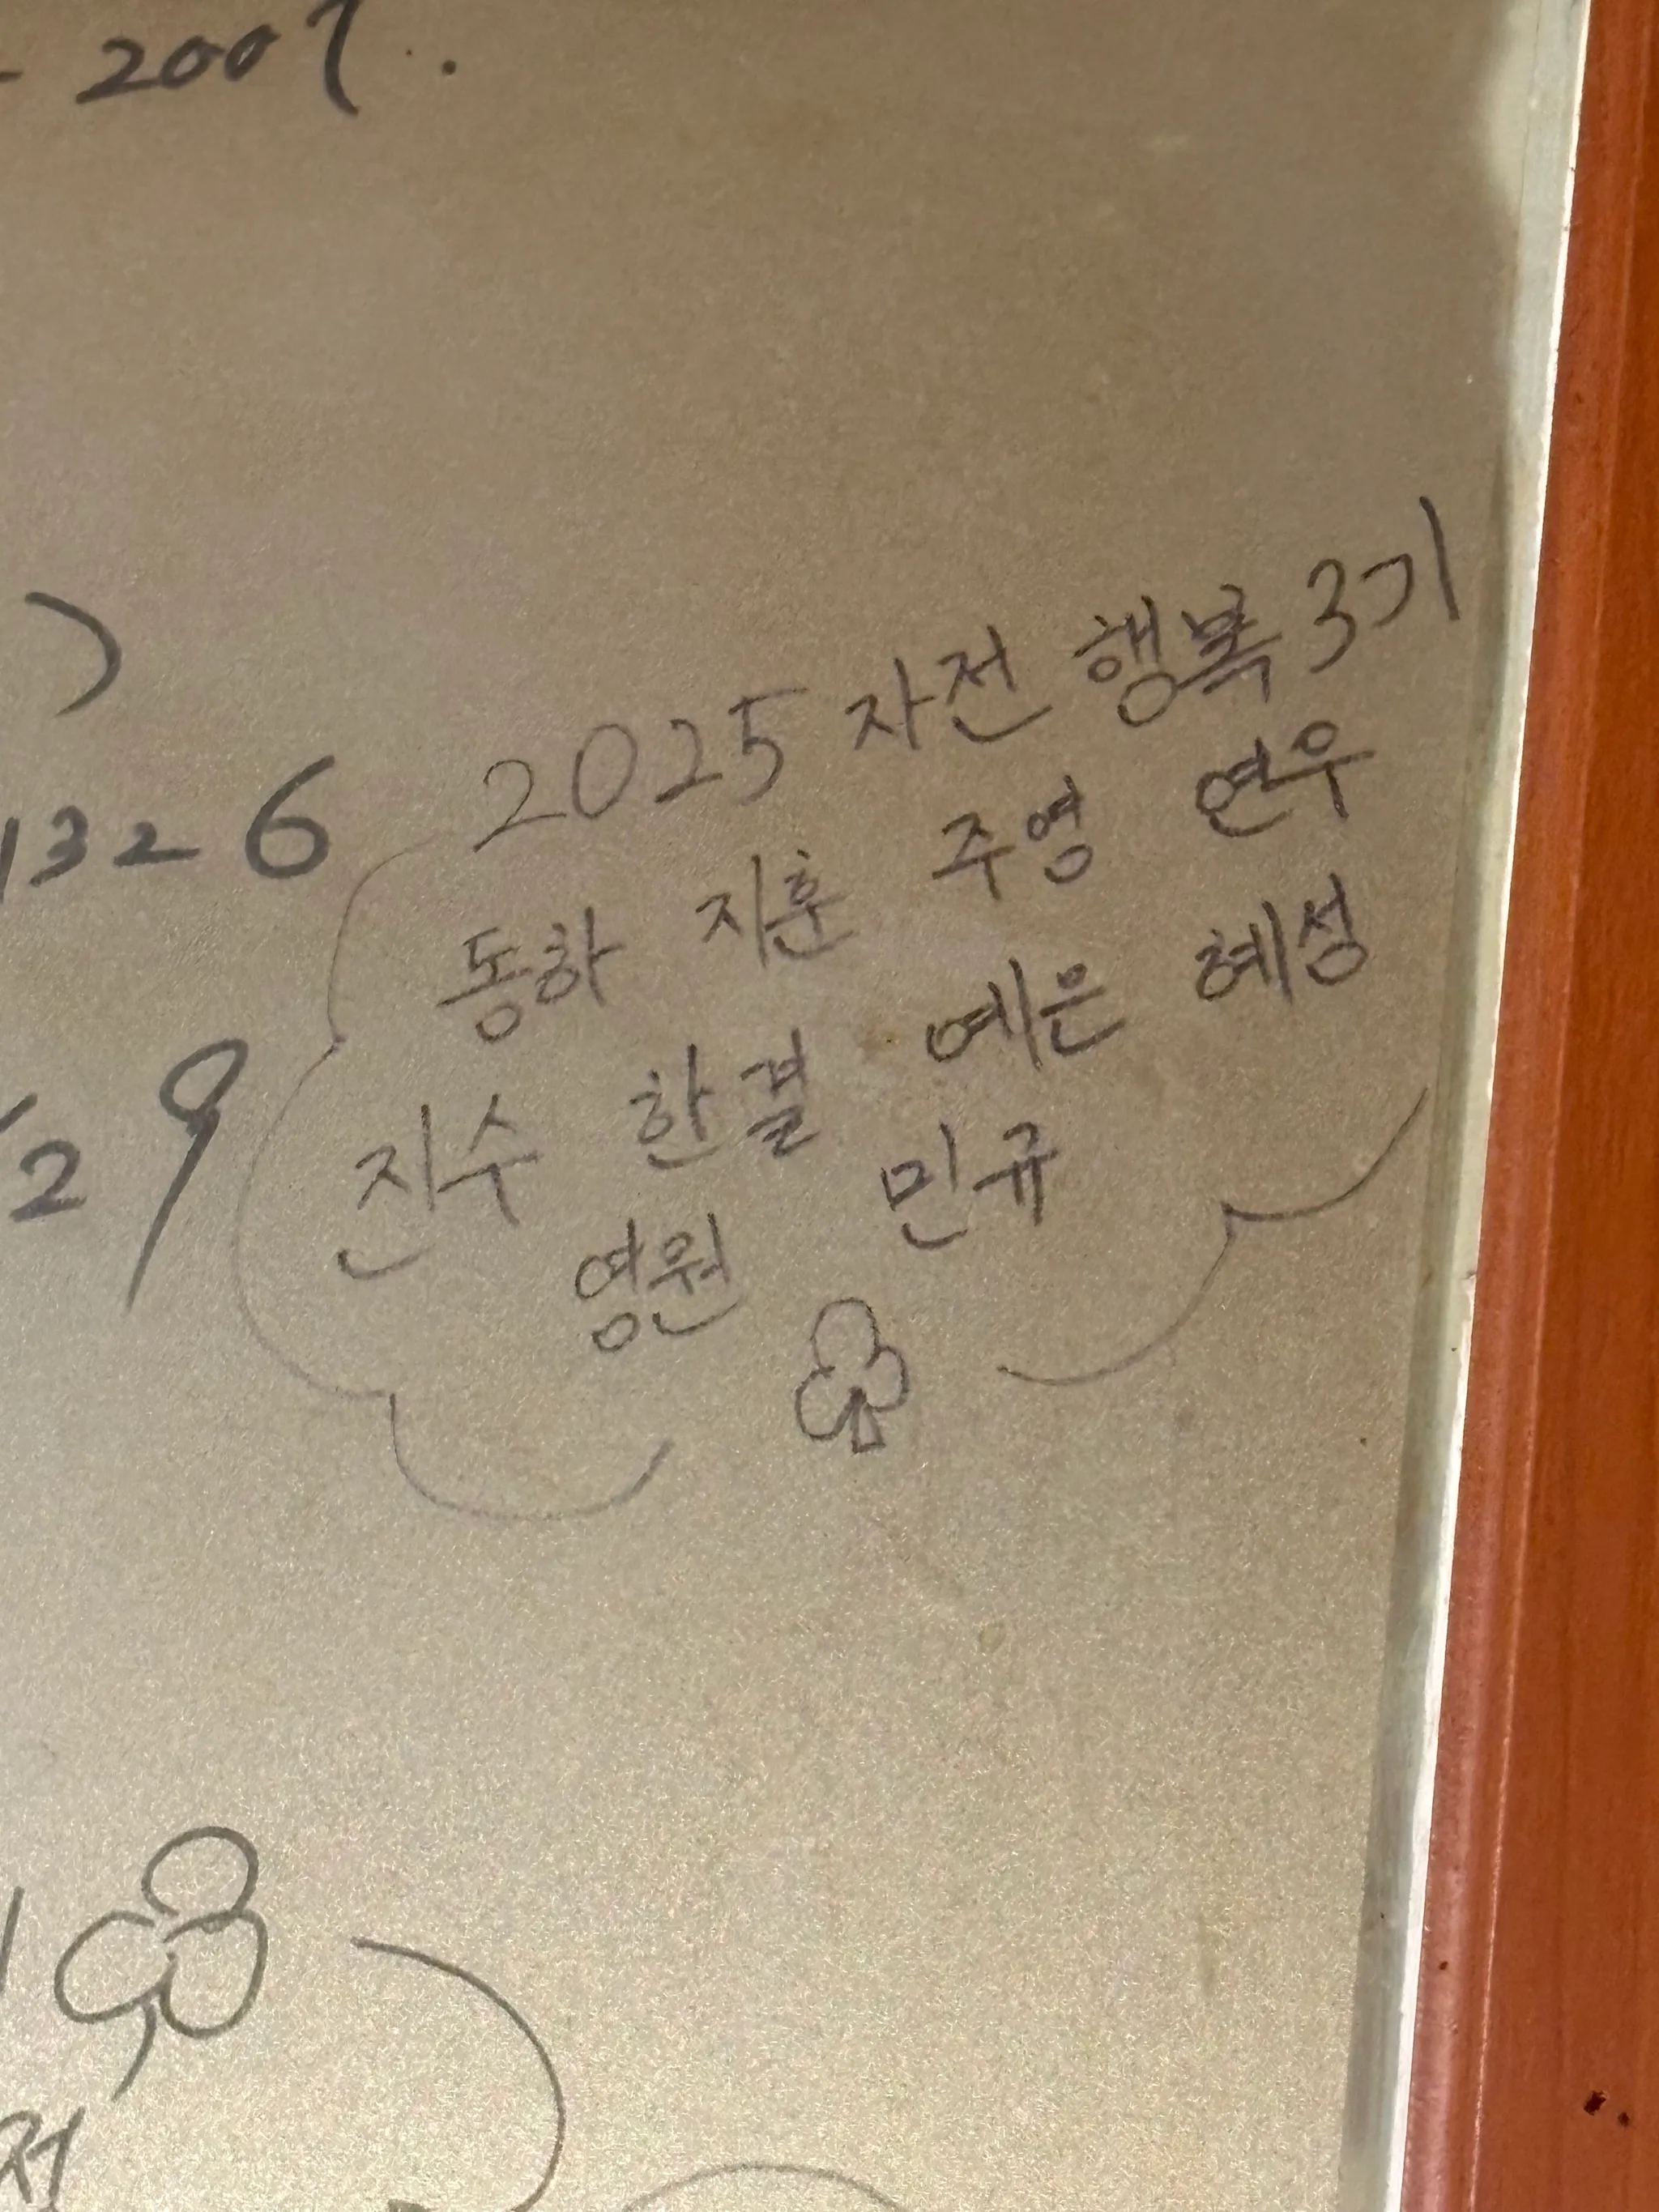 2007.
1326
2025 자전 행복 3기
동하 지훈 주영 연우
진수 한결 예은 혜성
영원 민규
29